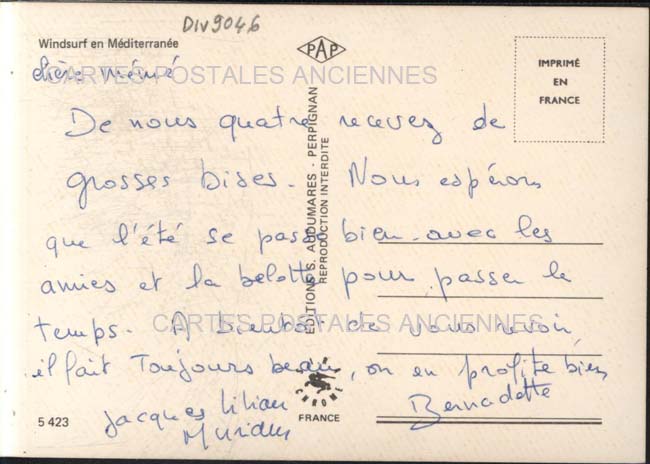 Div9046
Windsurf en Méditerranée
PAP
IMPRIMÉ
EN
FRANCE
chère mémé
CARTES POSTALES ANCIENNES
De nous quatre recevez de
grosses bises. Nous espérons
que l'été se passe bien avec les
amies et la belotte pour passer le
temps. A bientôt de vous revoir
CARTES POSTALES ANCIENNES
il fait Toujours beau, on en profite bien
Jacques Lilian Bernadette
EDITIONS S. AUDUMARES - PERPIGNAN
REPRODUCTION INTERDITE
CHROME
FRANCE
5 423